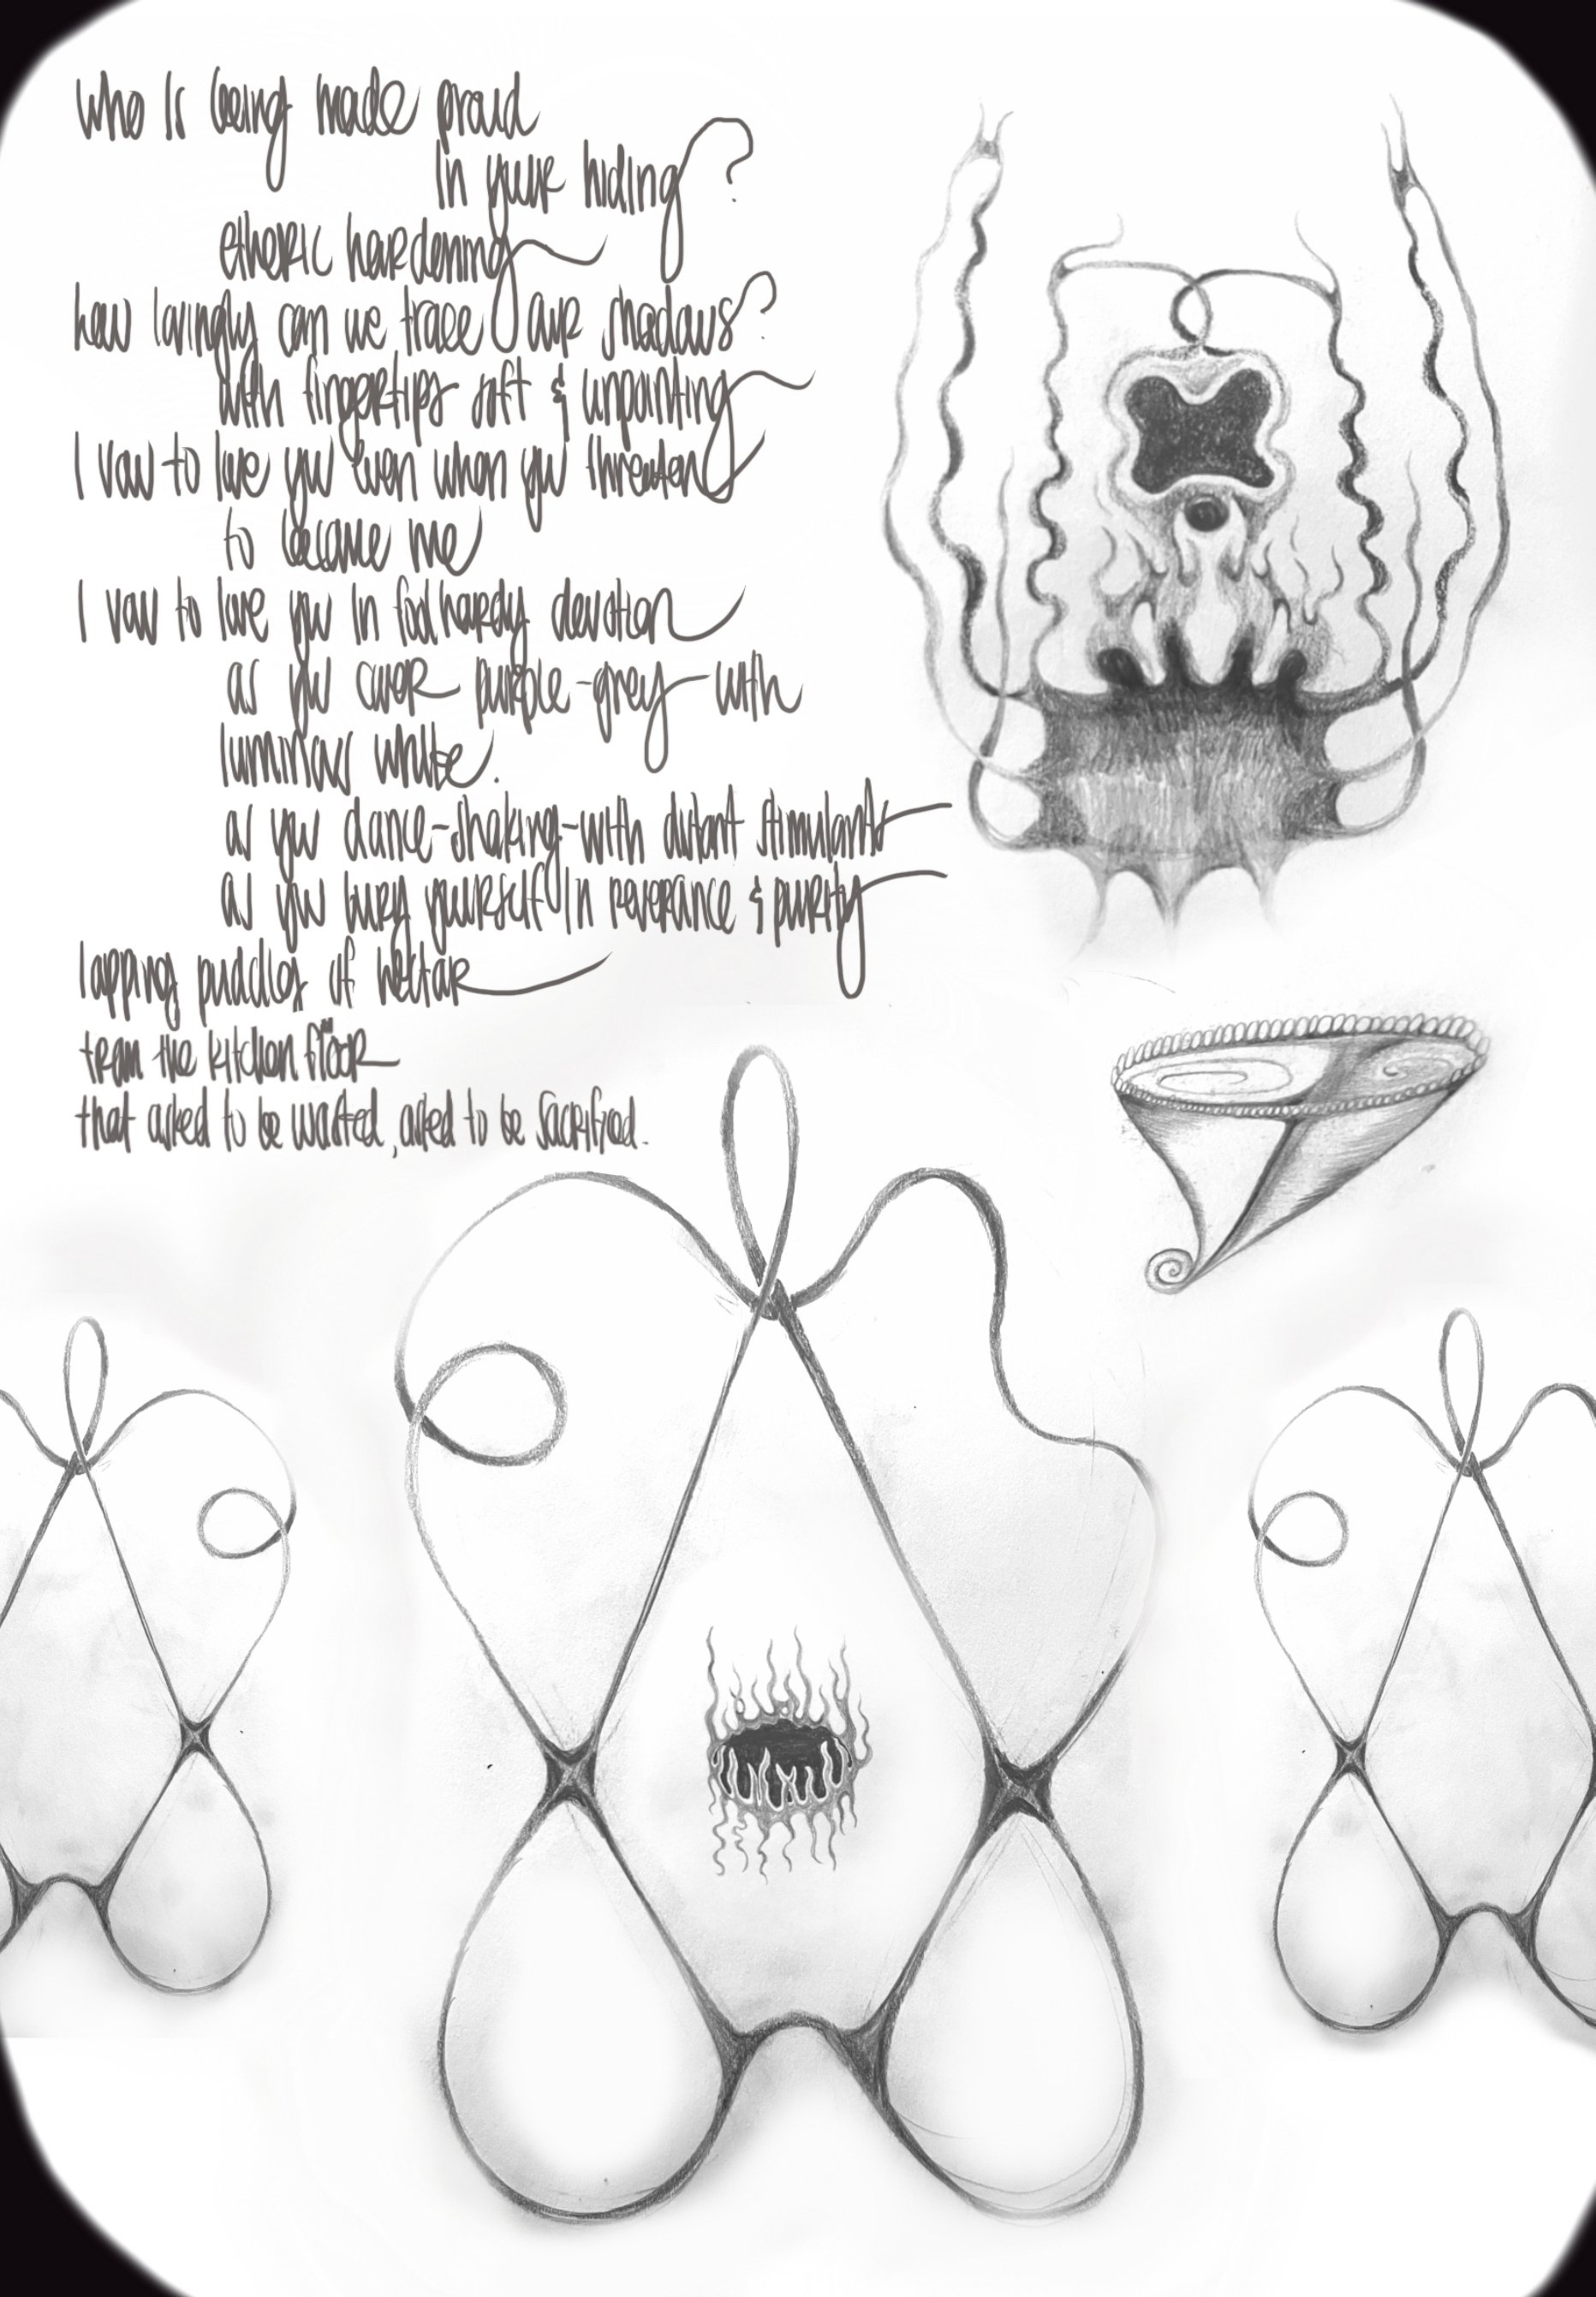 who is being made proud
in your hiding?
etheric hardening
how lovingly can we trace our shadows?
with fingertips soft & unpointing
I vow to love you even when you threaten
to become me
I vow to love you in foolhardy devotion
as you cover purple-grey-with
luminous white.
as you dance-shaking-with distant stimulants
as you bury yourself in reverance & purity
lapping puddles of nectar
from the kitchen floor
that asked to be wasted, asked to be sacrificed.